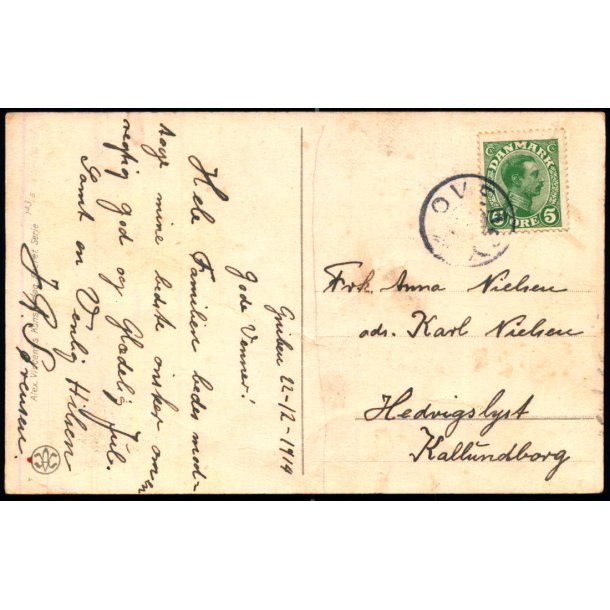 22-12-1914
Gode Venner!
Hele Familien bedes mod-
tage mine bedste ønsker om en
rigtig God og Glædelig Jul.
Samt en Venlig Hilsen
J. P. Sørensen.
DANMARK
5 ØRE 5
Frk. Anna Nielsen
ads. Karl Nielsen
Hedvigslyst
Kallundborg